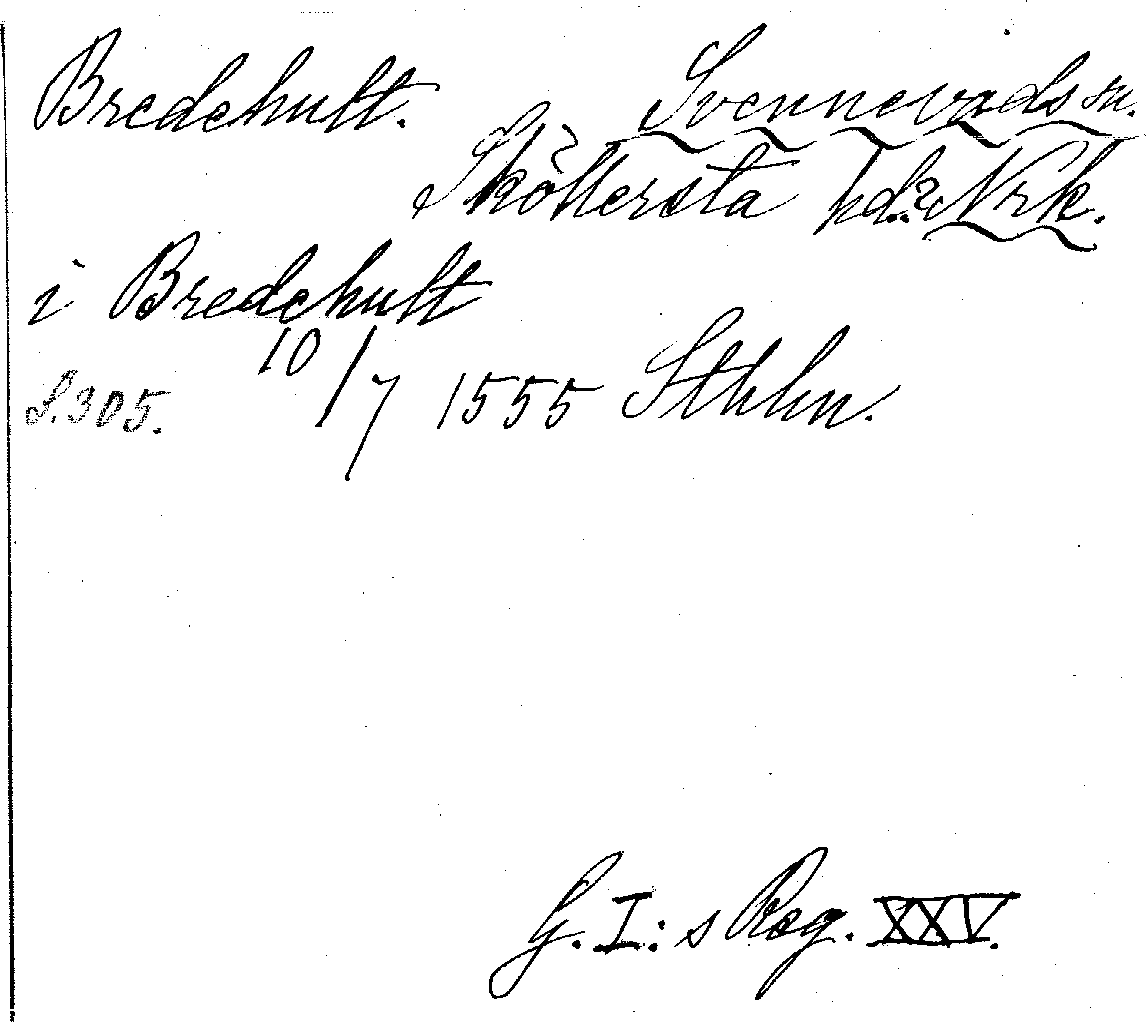 Bredehult. Svennevads sn.
Sköllersta hd? Nrk.
i Bredehult
S. 305. 10/7 1555 Sthlm.
G. I:s Reg. XXV.